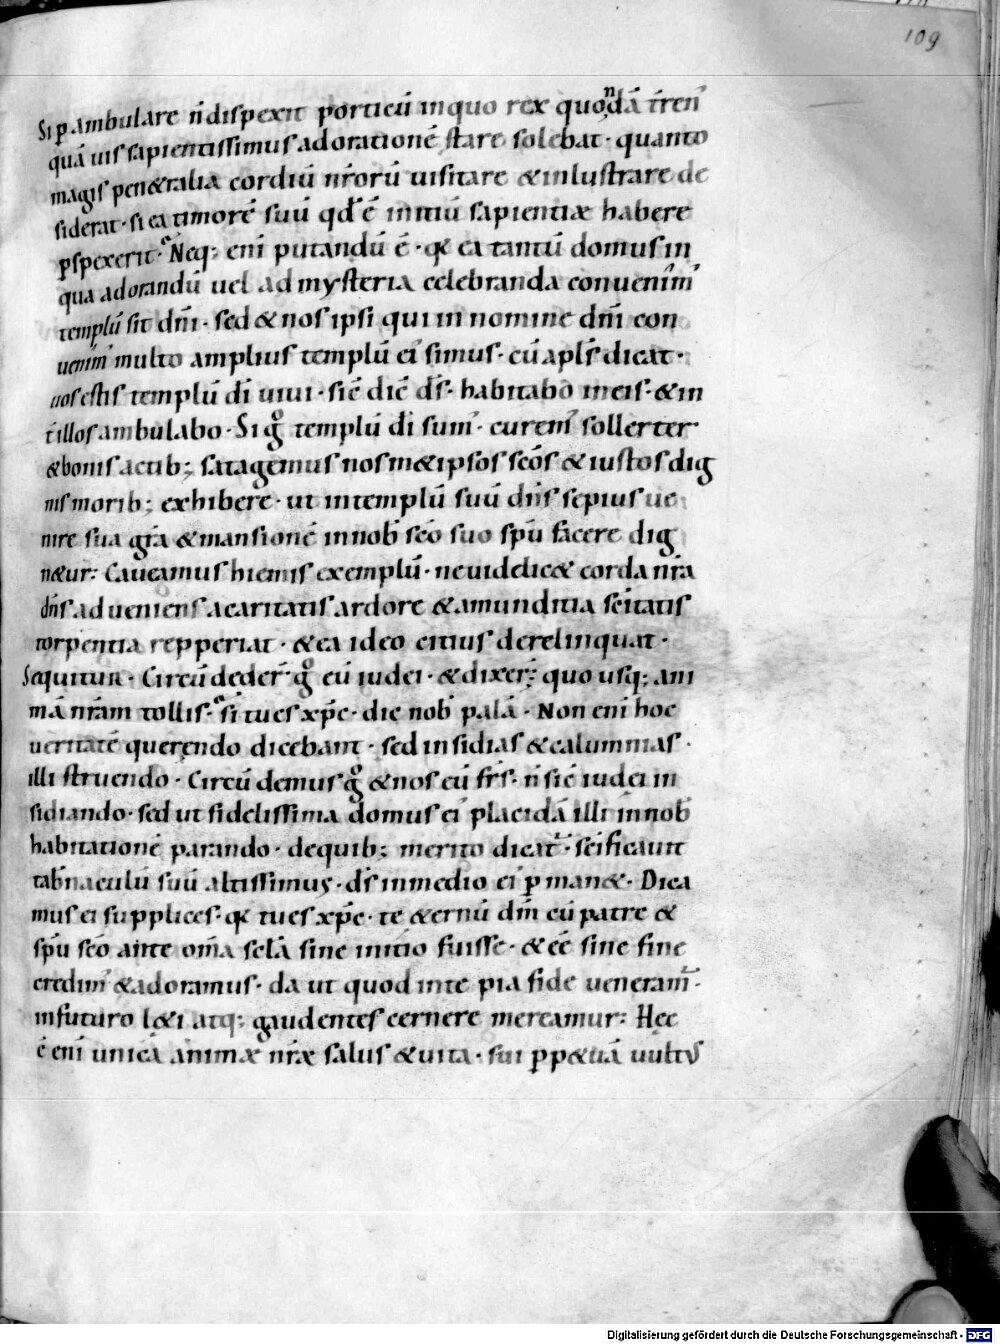 109
Si p ambulare n̄ dispexit porticū inquo rex quondā t̄ren̄
quā uis sapientissimus adorationē stare solebat · quanto
magis pen&ralia cordiū nr̄orū uisitare & inlustrare de
siderat · si ea timorē suū qd̄ ē initiū sapientiæ habere
pspexerit · Neq; eni putandū ē · qđ ea tantū domus in
qua adorandū uel ad mysteria celebranda conuenim̄
templū sit dn̄i · sed & nos ipsi qui in nomine dn̄i con
uenim̄ multo amplius templū ei simus · cū apl̄s dicat ·
uos estis templū dī uiui · sic̄ dic̄ ds̄ · habitabo in eis · & in
t̄ illos ambulabo · Si ḡ templū dī sum̄ · curem̄ sollerter
& bonis actib; satagemus nosm& ipsos sc̄os & iustos dig
nis morib; exhibere · ut in templū suū dn̄s sepius ue
nire sua gr̄a & mansionē in nob̄ sc̄o suo sp̄u facere dig
n&ur: Caueamus hiemis exemplū · ne uidelic& corda nr̄a
dn̄s adueniens a caritatis ardore & amunditia sc̄itatis
torpentia repperiat · & ea ideo citius derelinquat ·
Sequitur · Circū deder̄ ḡ eū iudei · & dixer̄; quo usq; ani
mā nr̄am tollis · si tu es xp̄c · dic nob̄ palā · Non eni hoc
ueritatē querendo dicebant · sed insidias & calumnias ·
illi struendo · Circū demus ḡ & nos eū frs̄ · n̄ sic̄ iudei in
sidiando · sed ut fidelissima domus ei placidā illi in nob̄
habitationē parando · de quib; merito dicat̄ · sc̄ificauit
tab̄naculū suū altissimus · ds̄ in medio ei p man& · Dica
mus ei supplices · qđ tu es xp̄c · te &ernū dn̄i cū patre &
sp̄u sc̄o ante om̄a sc̄la sine initio fuisse · & eē sine fine
credim̄ & adoramus · da ut quod in te pia fide ueneram̄ ·
in futuro l&i atq; gaudentes cernere mereamur: Hec
ē eni unica animæ nr̄æ salus & uita · sui pp&uā uultus
Digitalisierung gefördert durch die Deutsche Forschungsgemeinschaft - DFG